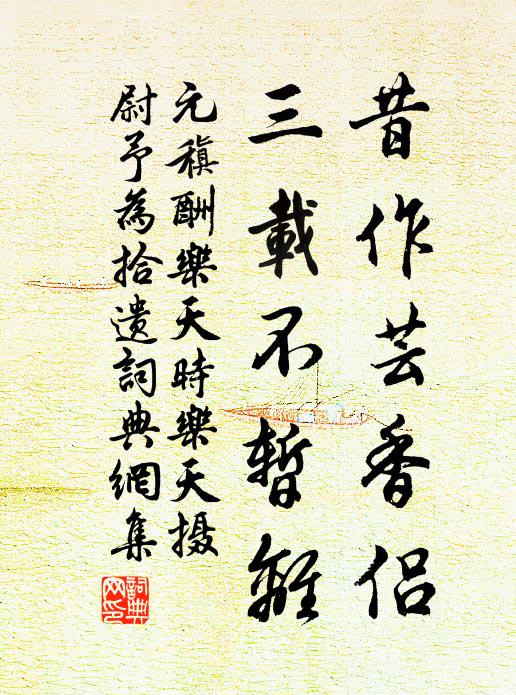 昔作芸香侶
三載不暫離
元稹酬樂天時樂天摄
尉予為拾遗詞典網集
詞典網印